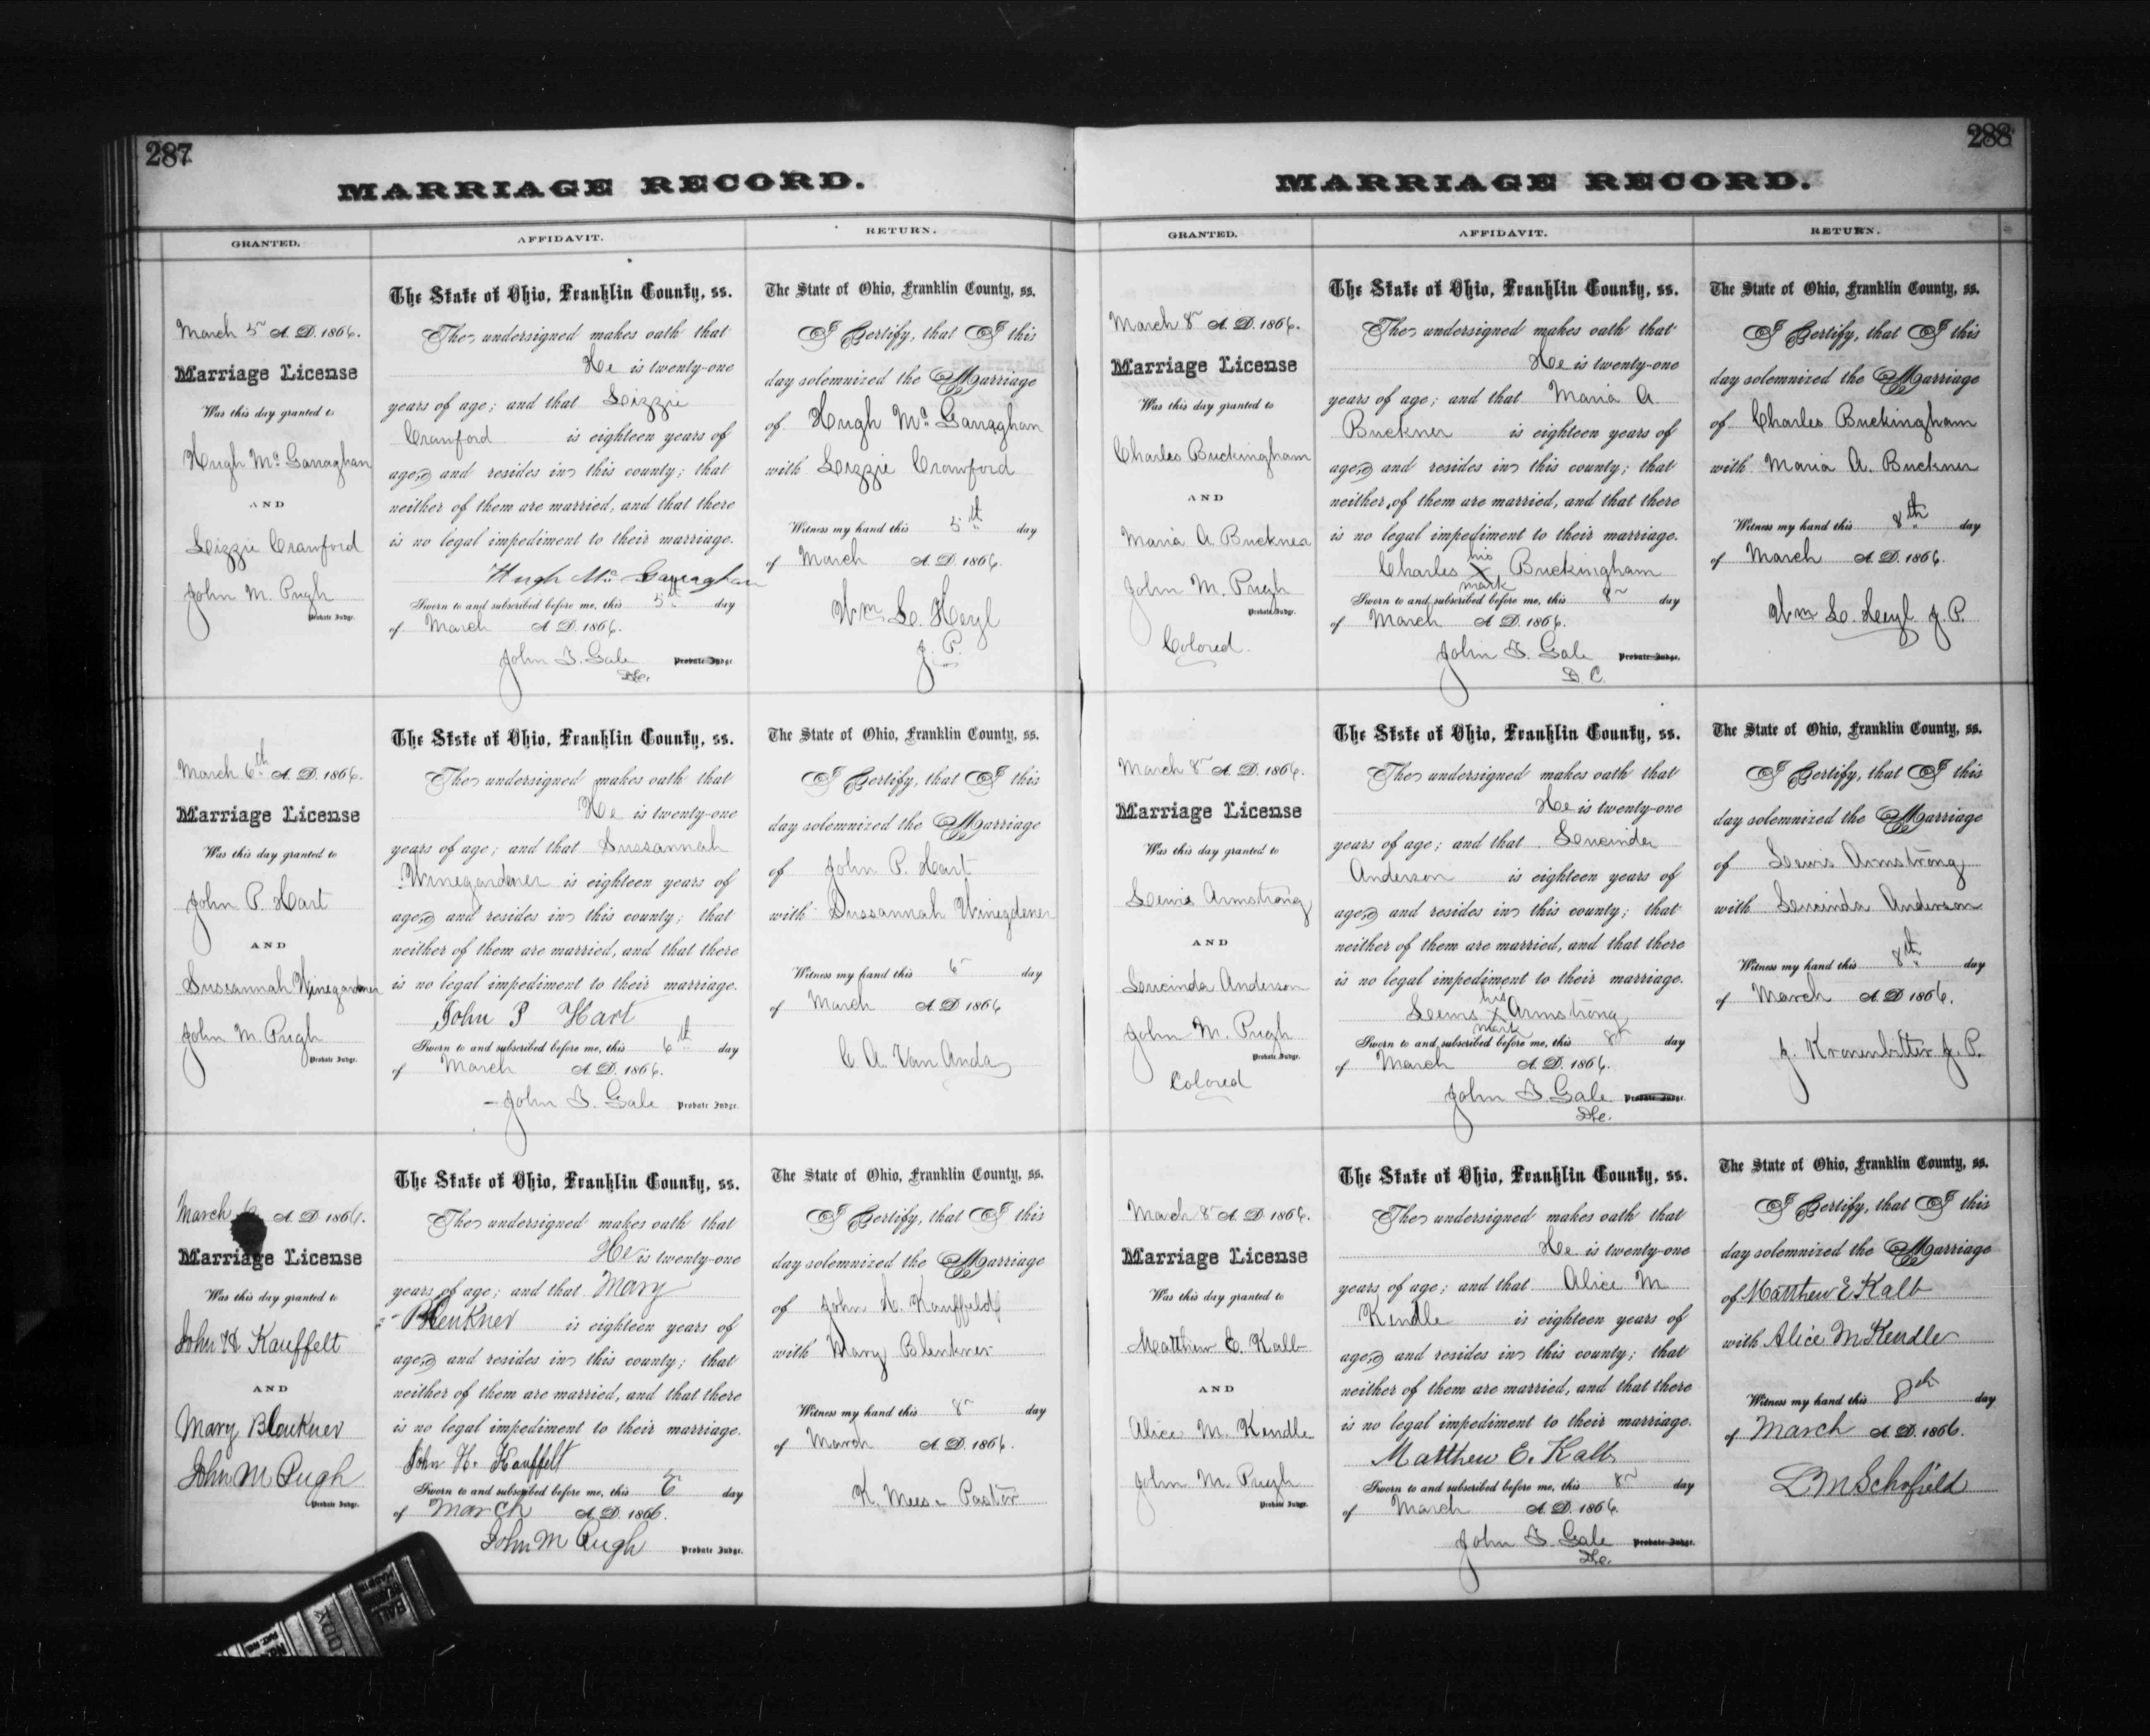 287
MARRIAGE RECORD.
GRANTED.
AFFIDAVIT.
RETURN.
March 5 A. D. 1866.
Marriage License
Was this day granted to
Hugh Mc Ganaghan
AND
Lizzie Crawford
John M. Pugh
Probate Judge.
The State of Ohio, Franklin County, ss.
The undersigned makes oath that
He is twenty-one
years of age; and that Lizzie
Crawford is eighteen years of
age, and resides in this county; that
neither of them are married, and that there
is no legal impediment to their marriage.
Hugh Mc Ganaghan
Sworn to and subscribed before me, this 5th day
of March A. D. 1866.
John T. Gale Probate Judge.
D.C.
The State of Ohio, Franklin County, ss.
I Certify, that I this
day solemnized the Marriage
of Hugh Mc Ganaghan
with Lizzie Crawford
Witness my hand this 5th day
of March A. D. 1866.
Wm L. Heyl
J. P.
March 6th A. D. 1866.
Marriage License
Was this day granted to
John P. Hart
AND
Sussannah Winegardner
John M. Pugh
Probate Judge.
The State of Ohio, Franklin County, ss.
The undersigned makes oath that
He is twenty-one
years of age; and that Sussannah
Winegardener is eighteen years of
age, and resides in this county; that
neither of them are married, and that there
is no legal impediment to their marriage.
John P Hart
Sworn to and subscribed before me, this 6th day
of March A. D. 1866.
John T. Gale Probate Judge.
The State of Ohio, Franklin County, ss.
I Certify, that I this
day solemnized the Marriage
of John P. Hart
with Sussannah Winegdener
Witness my hand this 6 day
of March A. D. 1866
C. A. Van Anda
March 6 A. D. 1866.
Marriage License
Was this day granted to
John H Kauffelt
AND
Mary Blenkner
John M Pugh
Probate Judge.
The State of Ohio, Franklin County, ss.
The undersigned makes oath that
He is twenty-one
years of age; and that Mary
Blenkner is eighteen years of
age, and resides in this county; that
neither of them are married, and that there
is no legal impediment to their marriage.
John H. Kauffelt
Sworn to and subscribed before me, this 6 day
of March A. D. 1866.
John M Pugh Probate Judge.
The State of Ohio, Franklin County, ss.
I Certify, that I this
day solemnized the Marriage
of John H. Kauffeld
with Mary Blenkner
Witness my hand this 8 day
of March A. D. 1866.
K. Mees Pastor
288
MARRIAGE RECORD.
GRANTED.
AFFIDAVIT.
RETURN.
March 8 A. D. 1866.
Marriage License
Was this day granted to
Charles Buckingham
AND
Maria A Buckner
John M. Pugh
Probate Judge.
Colored.
The State of Ohio, Franklin County, ss.
The undersigned makes oath that
He is twenty-one
years of age; and that Maria A.
Buckner is eighteen years of
age, and resides in this county; that
neither of them are married, and that there
is no legal impediment to their marriage.
his
Charles X Buckingham
mark
Sworn to and subscribed before me, this 8 day
of March A. D. 1866.
John T. Gale Probate Judge.
D. C.
The State of Ohio, Franklin County, ss.
I Certify, that I this
day solemnized the Marriage
of Charles Buckingham
with Maria A. Buckner
Witness my hand this 8th day
of March A. D. 1866.
Wm L. Heyl J. P.
March 8 A. D. 1866.
Marriage License
Was this day granted to
Lewis Armstrong
AND
Lucinda Anderson
John M. Pugh
Probate Judge.
Colored
The State of Ohio, Franklin County, ss.
The undersigned makes oath that
He is twenty-one
years of age; and that Lucinda
Anderson is eighteen years of
age, and resides in this county; that
neither of them are married, and that there
is no legal impediment to their marriage.
his
Lewis X Armstrong
mark
Sworn to and subscribed before me, this 8 day
of March A. D. 1866.
John T Gale Probate Judge.
D.C.
The State of Ohio, Franklin County, ss.
I Certify, that I this
day solemnized the Marriage
of Lewis Armstrong
with Lucinda Anderson
Witness my hand this 8th day
of March A. D. 1866.
J. Kronenbitter J. P.
March 8 A. D. 1866.
Marriage License
Was this day granted to
Matthew E. Kalb
AND
Alice M. Kendle
John M. Pugh
Probate Judge.
The State of Ohio, Franklin County, ss.
The undersigned makes oath that
He is twenty-one
years of age; and that Alice M
Kendle is eighteen years of
age, and resides in this county; that
neither of them are married, and that there
is no legal impediment to their marriage.
Matthew E. Kalb
Sworn to and subscribed before me, this 8 day
of March A. D. 1866.
John T. Gale Probate Judge.
D.C.
The State of Ohio, Franklin County, ss.
I Certify, that I this
day solemnized the Marriage
of Matthew E Kalb
with Alice M Kendle
Witness my hand this 8th day
of March A. D. 1866.
L M Schofield